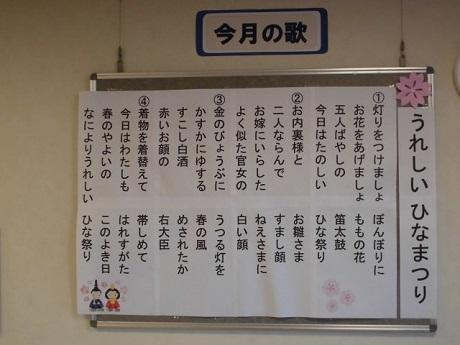 今月の歌
うれしい ひなまつり
①灯りをつけましょ ぼんぼりに
お花をあげましょ ももの花
五人ばやしの 笛太鼓
今日はたのしい ひな祭り
②お内裏様と お雛さま
二人ならんで すまし顔
お嫁にいらした ねえさまに
よく似た官女の 白い顔
③金のびょうぶに うつる灯を
かすかにゆする 春の風
すこし白酒 めされたか
赤いお顔の 右大臣
④着物を着替えて 帯しめて
今日はわたしも はれすがた
春のやよいの このよき日
なによりうれしい ひな祭り